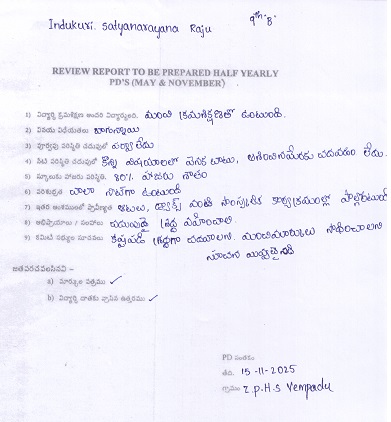 Indukuri. Satyanarayana Raju 9th "B"
REVIEW REPORT TO BE PREPARED HALF YEARLY
PD'S (MAY & NOVEMBER)
1) విద్యార్థి క్రమశిక్షణ అందరి విద్యార్థులలో. మంచి క్రమశిక్షణతో ఉంటుంది.
2) వినయ విధేయతలు బాగున్నాయి
3) పూర్వపు పరిస్థితి చదువులో పర్వాలేదు
4) నేటి పరిస్థితి చదువులో కొన్ని విషయాలలో వెనక బాటు, ఆశించినమేరకు చదవడం లేదు.
5) స్కూలుకు హాజరు పరిస్థితి. 80% హాజరు శాతం
6) పరిశుభ్రత చాలా నీట్‌గా ఉంటుంది
7) ఇతర అంశములలో ప్రావీణ్యత ఆటలు, డ్యాన్స్ వంటి సాంస్కృతిక కార్యక్రమంల్లో పాల్గొంటుంది
8) అభిప్రాయాలు / సలహాలు చదువుపై శ్రద్ధ వహించాలి.
9) కమిటీ సభ్యుల సూచనలు కష్టపడి శ్రద్ధగా చదవాలని. మంచిమార్కులు సాధించాలని
సూచన ఇవ్వడమైనది
జతపరచవలసినవి –
a) మార్కుల పత్రము ✓
b) విద్యార్థి దాతకు వ్రాసిన ఉత్తరము ✓
PD సంతకం
తేది. 15-11-2025
గ్రామం Z.P.H.S Vempadu